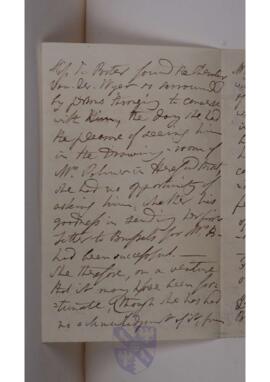 Miss J. Porter found the Chevalier
Van-der-Wyer so surrounded
by persons longing to converse
with him, the day she had
the pleasure of seeing him
in the Drawing-room of
Mrs in Hereford Street,
she had no opportunity of
asking him, whether his
goodness in sending her
letter to Brussels for Mr
had been successful. —
She therefore, on a venture
that it may have been for-
tunate, (though she has had
no acknowledgment of it, from